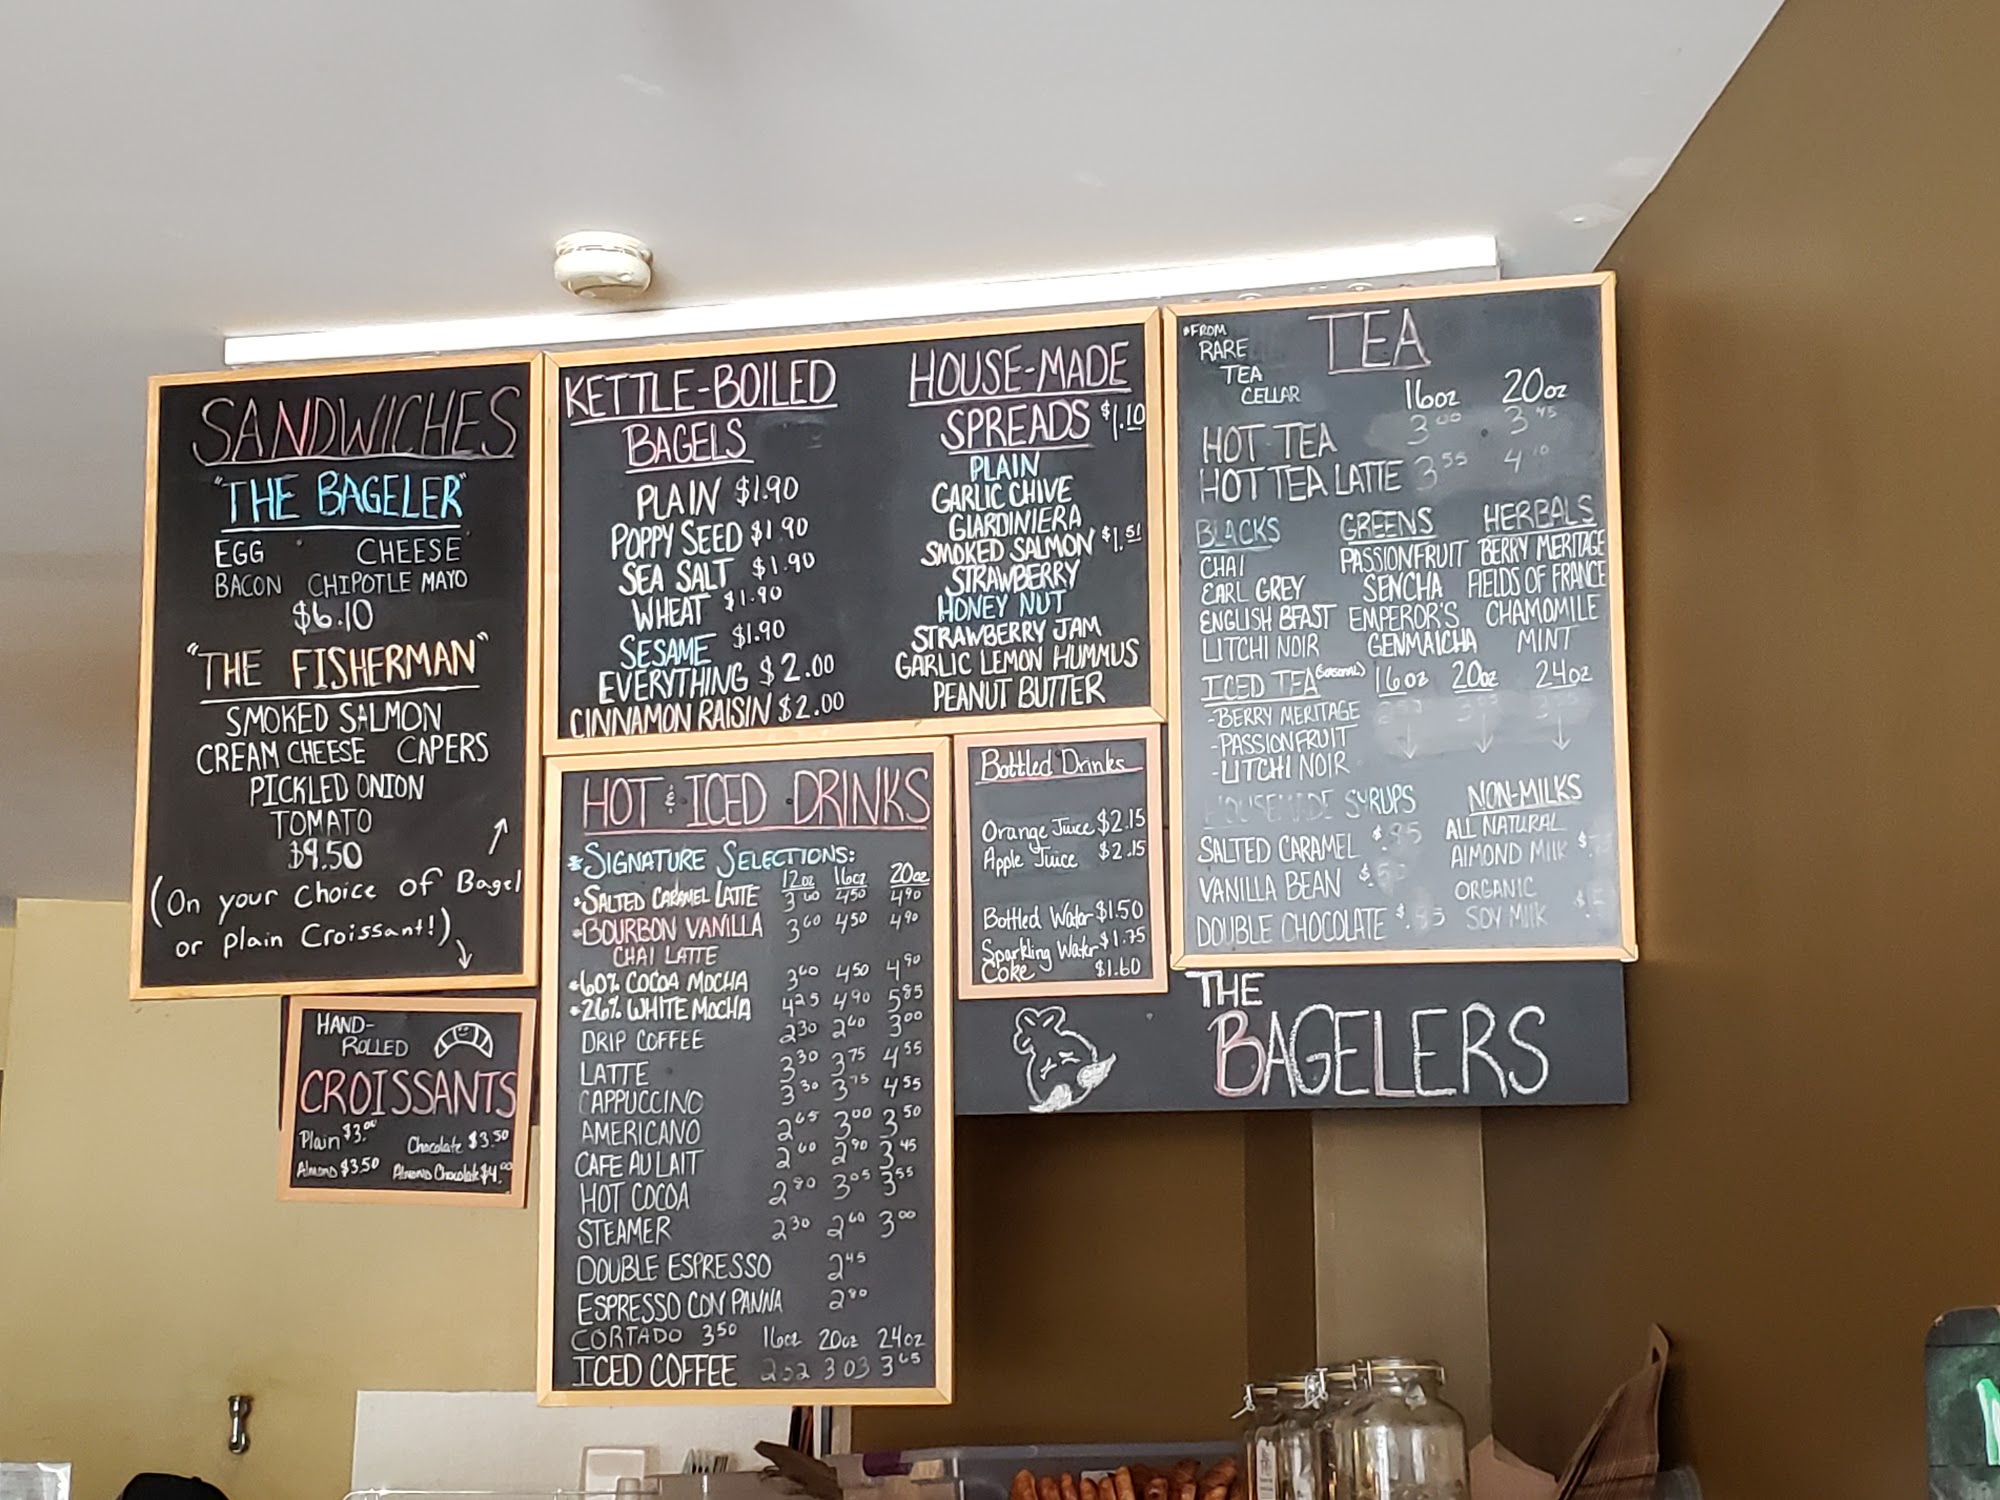 SANDWICHES
"THE BAGELER"
EGG CHEESE
BACON CHIPOTLE MAYO
$6.10
"THE FISHERMAN"
SMOKED SALMON
CREAM CHEESE CAPERS
PICKLED ONION
TOMATO
$9.50
(On your choice of Bagel
or plain Croissant!)
HAND-
ROLLED
CROISSANTS
Plain $3.00 Chocolate $3.50
Almond $3.50 Almond Chocolate $4.00
KETTLE-BOILED
BAGELS
PLAIN $1.90
POPPY SEED $1.90
SEA SALT $1.90
WHEAT $1.90
SESAME $1.90
EVERYTHING $2.00
CINNAMON RAISIN $2.00
HOUSE-MADE
SPREADS $1.10
PLAIN
GARLIC CHIVE
GIARDINIERA
SMOKED SALMON $1.51
STRAWBERRY
HONEY NUT
STRAWBERRY JAM
GARLIC LEMON HUMMUS
PEANUT BUTTER
HOT & ICED DRINKS
*SIGNATURE SELECTIONS:
12oz 16oz 20oz
*SALTED CARAMEL LATTE 3 60 450 490
*BOURBON VANILLA 3 60 450 490
CHAI LATTE
*60% COCOA MOCHA 3 60 450 490
*26% WHITE MOCHA 425 490 585
DRIP COFFEE 230 260 300
LATTE 330 375 455
CAPPUCCINO 330 375 455
AMERICANO 265 300 350
CAFE AU LAIT 260 290 345
HOT COCOA 280 305 355
STEAMER 230 260 300
DOUBLE ESPRESSO 245
ESPRESSO CON PANNA 280
CORTADO 350 16oz 20oz 24oz
ICED COFFEE 252 303 365
Bottled Drinks
Orange Juice $2.15
Apple Juice $2.15
Bottled Water $1.50
Sparkling Water $1.75
Coke $1.60
*FROM
RARE
TEA
CELLAR
TEA
16oz 20oz
HOT TEA 300 345
HOT TEA LATTE 355 410
BLACKS
CHAI
EARL GREY
ENGLISH BFAST
LITCHI NOIR
GREENS
PASSIONFRUIT
SENCHA
EMPEROR'S
GENMAICHA
HERBALS
BERRY MERITAGE
FIELDS OF FRANCE
CHAMOMILE
MINT
ICED TEA (SEASONAL) 16oz 20oz 24oz
-BERRY MERITAGE
-PASSIONFRUIT
-LITCHI NOIR
HOUSEMADE SYRUPS
SALTED CARAMEL
VANILLA BEAN
DOUBLE CHOCOLATE
NON-MILKS
ALL NATURAL
ALMOND MILK
ORGANIC
SOY MILK
THE
BAGELERS